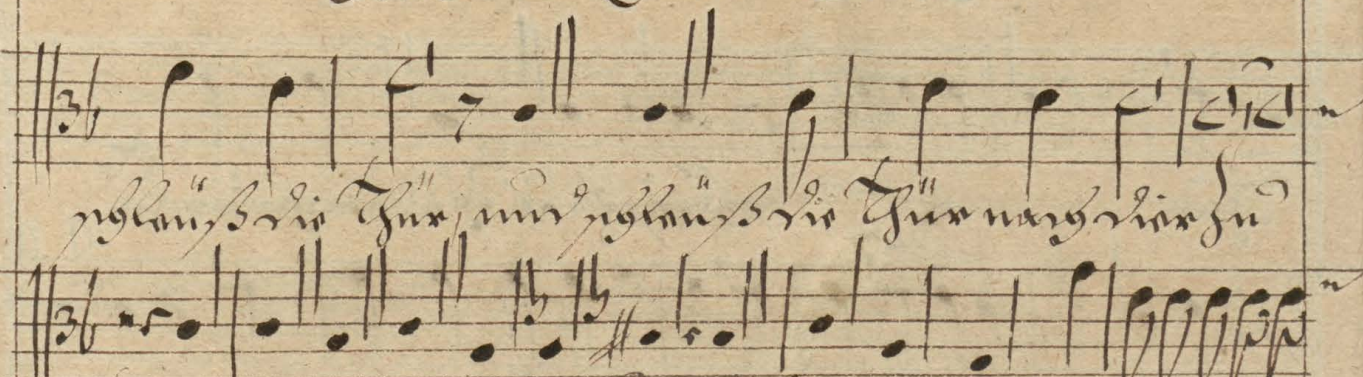 schleuß die Thür, und schleuß die Thür nach dier zu